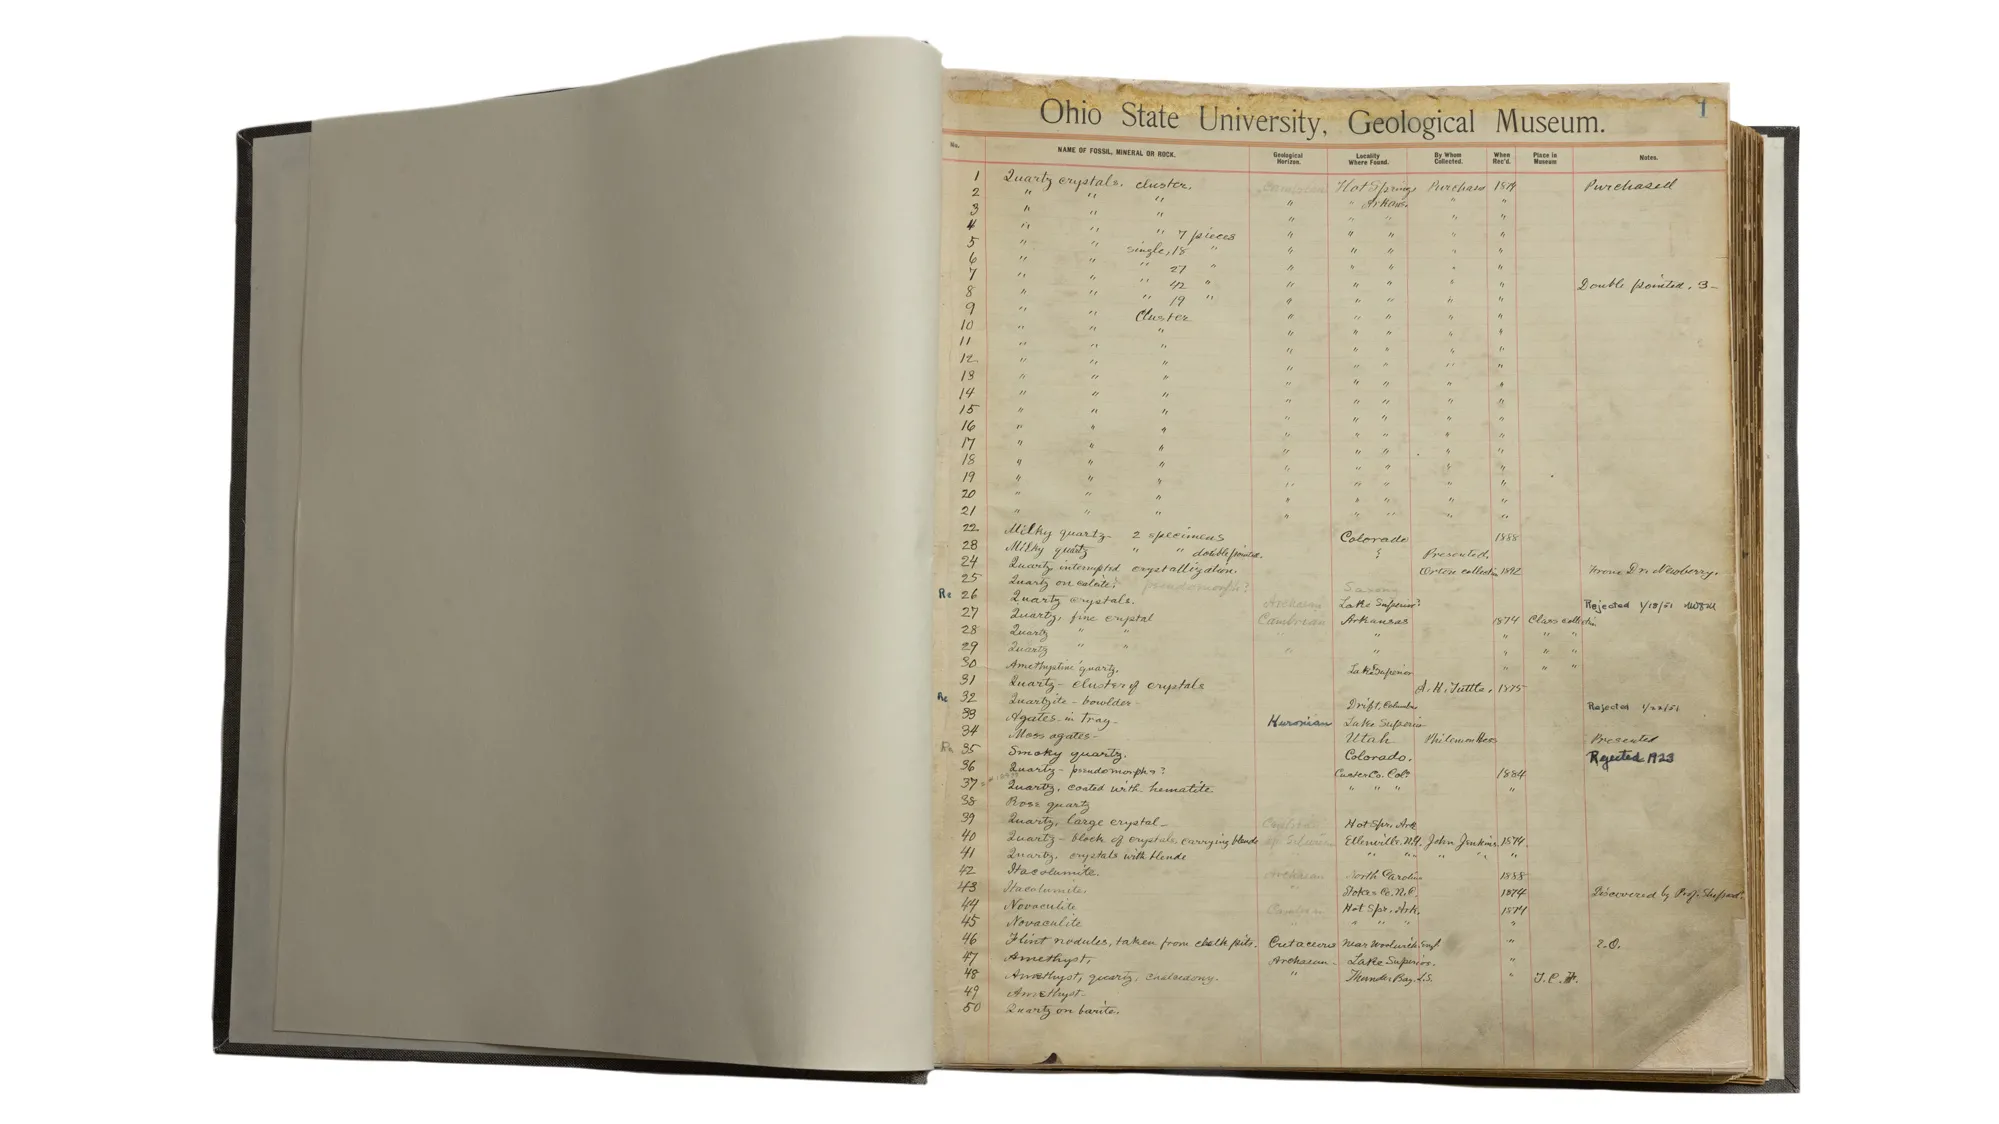 Ohio State University, Geological Museum. 1
No. NAME OF FOSSIL, MINERAL OR ROCK. Geological Horizon. Locality Where Found. By Whom Collected. When Rec'd. Place in Museum Notes.
1 Quartz crystals, cluster. Hot Springs Purchase Purchased
2 " " " Arkans.
3 " " " " " " " "
4 " " " 7 pieces " " " " "
5 " " single, 18 " " " " " "
6 " " " 27 " " " " " "
7 " " " 42 " " " " " " Double pointed. 3-
8 " " " 19 " " " " " "
9 " " Cluster " " " " "
10 " " " " " " " "
11 " " " " " " " "
12 " " " " " " " "
13 " " " " " " " "
14 " " " " " " " "
15 " " " " " " " "
16 " " " " " " " "
17 " " " " " " " "
18 " " " " " " " "
19 " " " " " " " "
20 " " " " " " " "
21 " " " " " " " "
22 Milky quartz- 2 specimens Colorado 1888
23 Milky quartz " " double pointed. Presented.
24 Quartz interrupted crystallization. Orton collection From Dr. Newberry.
25 Quartz on calcite. pseudomorph?
Re 26 Quartz crystals. Archaean Lake Superior? Rejected 1/18/51
27 Quartz, fine crystal Cambrian Arkansas 1874 Class collection
28 Quartz " " " " " " "
29 Quartz " " " " " " "
30 Amethystine quartz. Lake Superior " " "
31 Quartz- cluster of crystals A. H. Tuttle. 1875
Re 32 Quartzite- bowlder- Drift, Columbus Rejected 1/22/51
33 Agates- in tray- Huronian Lake Superior
34 Moss agates- Utah Philemon Hess Presented
Re 35 Smoky quartz. Colorado. Rejected 1923
36 Quartz- pseudomorphs? Custer Co. Col. 1884
37 Quartz, coated with hematite. " " " "
38 Rose quartz
39 Quartz, large crystal- Hot Spr. Ark
40 Quartz- block of crystals carrying blende Ellenville, N.Y. John Jenkins. 1874.
41 Quartz, crystals with blende " " " " "
42 Itacolumite. Archaean North Carolina 1888
43 Itacolumite. " Stokes Co. N.C. 1874 Discovered by Prof. Shepard.
44 Novaculite Hot Spr. Ark. 1874
45 Novaculite " " " "
46 Flint nodules, taken from chalk pits. Cretaceous Near Woolwich, Engl "
47 Amethyst, Archaean- Lake Superior. "
48 Amethyst, quartz, chalcedony. " Thunder Bay. L.S. "
49 Amethyst-
50 Quartz on barite.